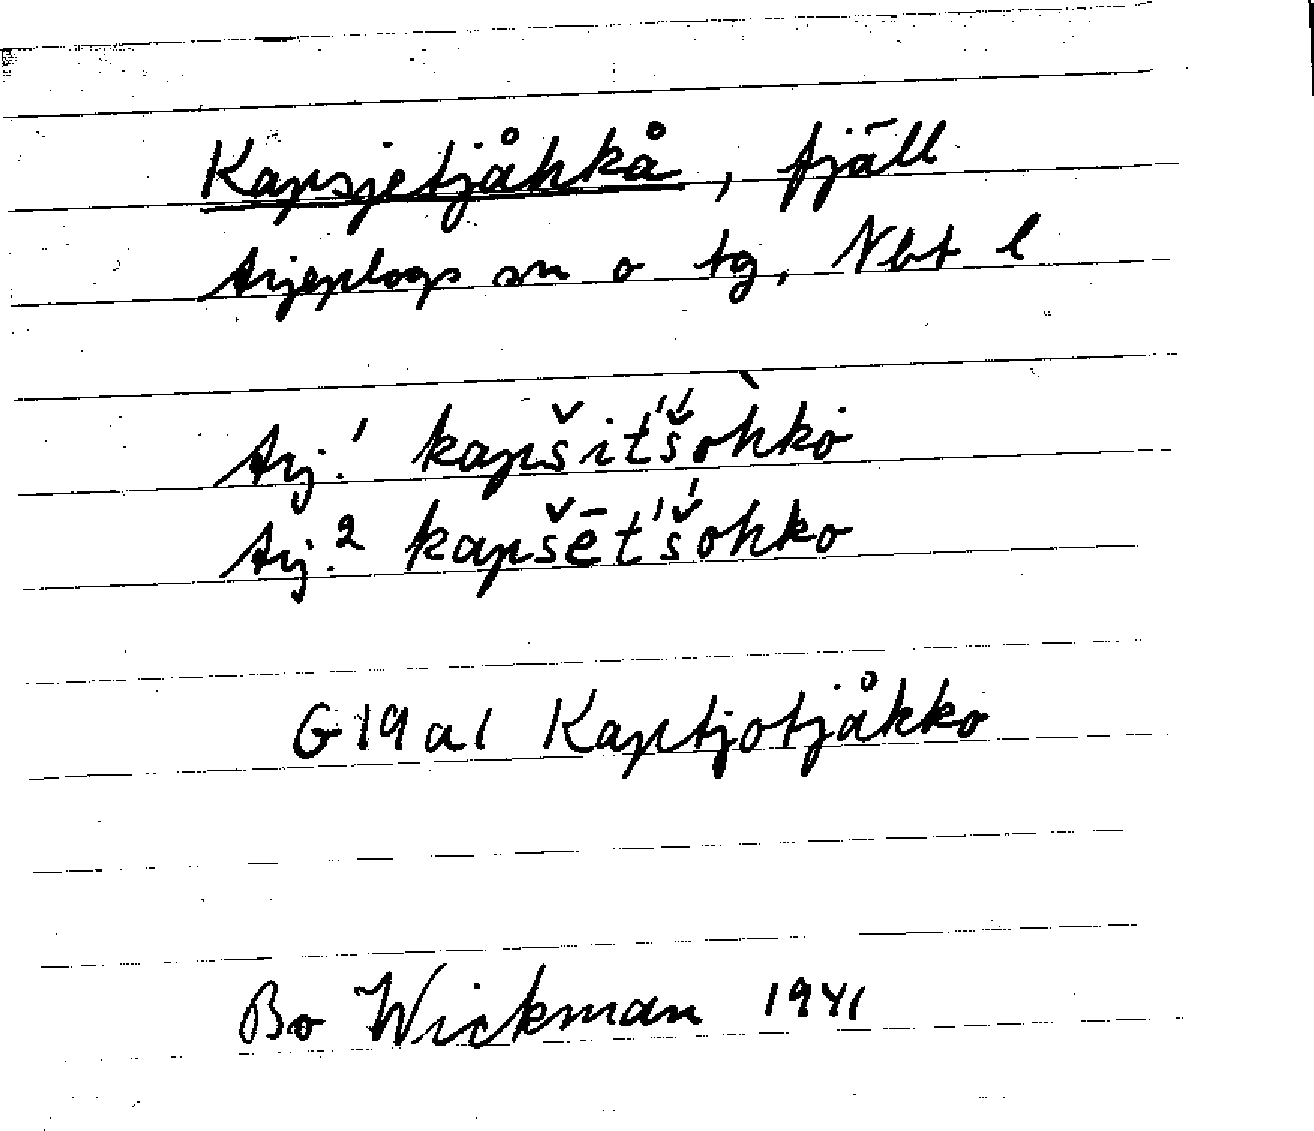 Kapsjetjåhkå, fjäll
Arjeplogs sn o tg, Nbt l
Arj.¹ kapšit́š́òhkȯ
Arj.² kapšēt́š́ohko
G19a1 Kaptjotjåkko
Bo Wickman 1941